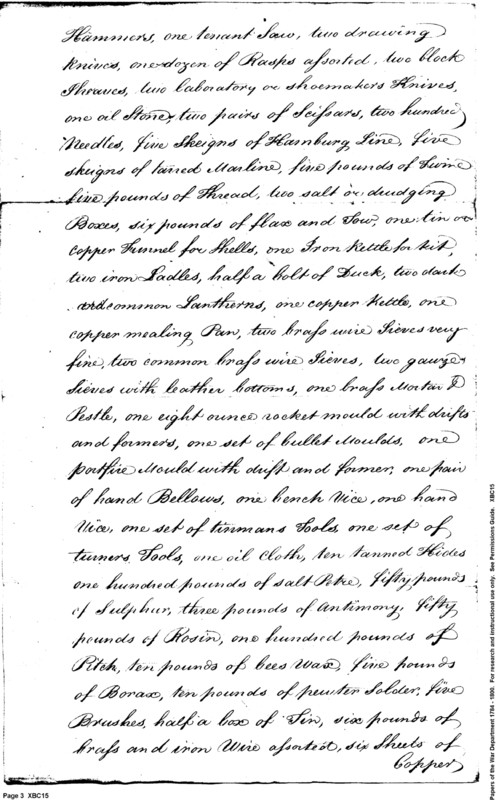 Hammers, one tenant Saw, two drawing
knives, one dozen of Rasps assorted, two block
Sheaves, two laboratory or shoemakers Knives,
one oil Stone, two pairs of Scissars, two hundred
Needles, five Skeigns of Hamburg Line, five
skeigns of tarred Marline, five pounds of Twine
five pounds of Thread, two salt or drudging
Boxes, six pounds of flax and Tow, one tin or
copper Funnel for Shells, one Iron Kettle for kit,
two iron Ladles, half a bolt of Duck, two dark
and common Lantherns, one copper Kettle, one
copper mealing Pan, two brass wire Sieves very
fine, two common brass wire Sieves, two gawze
Sieves with leather bottoms, one brass Mortar &
Pestle, one eight ounce rocket mould with drifts
and formers, one set of bullet Moulds, one
portfire Mould with drift and former, one pair
of hand Bellows, one bench Vice, one hand
Vice, one set of tinmans Tools, one set of
turners Tools, one oil cloth, ten tanned Hides
one hundred pounds of salt Petre, fifty pounds
of Sulphur, three pounds of Antimony, fifty
pounds of Rosin, one hundred pounds of
Pitch, ten pounds of bees Wax, five pounds
of Borax, ten pounds of pewter Solder, five
Brushes, half a box of Tin, six pounds of
brass and iron Wire assorted, six Sheets of
Copper
Page 3 XBC15
Papers of the War Department 1784 - 1800. For research and instructional use only. See Permissions Guide. XBC15